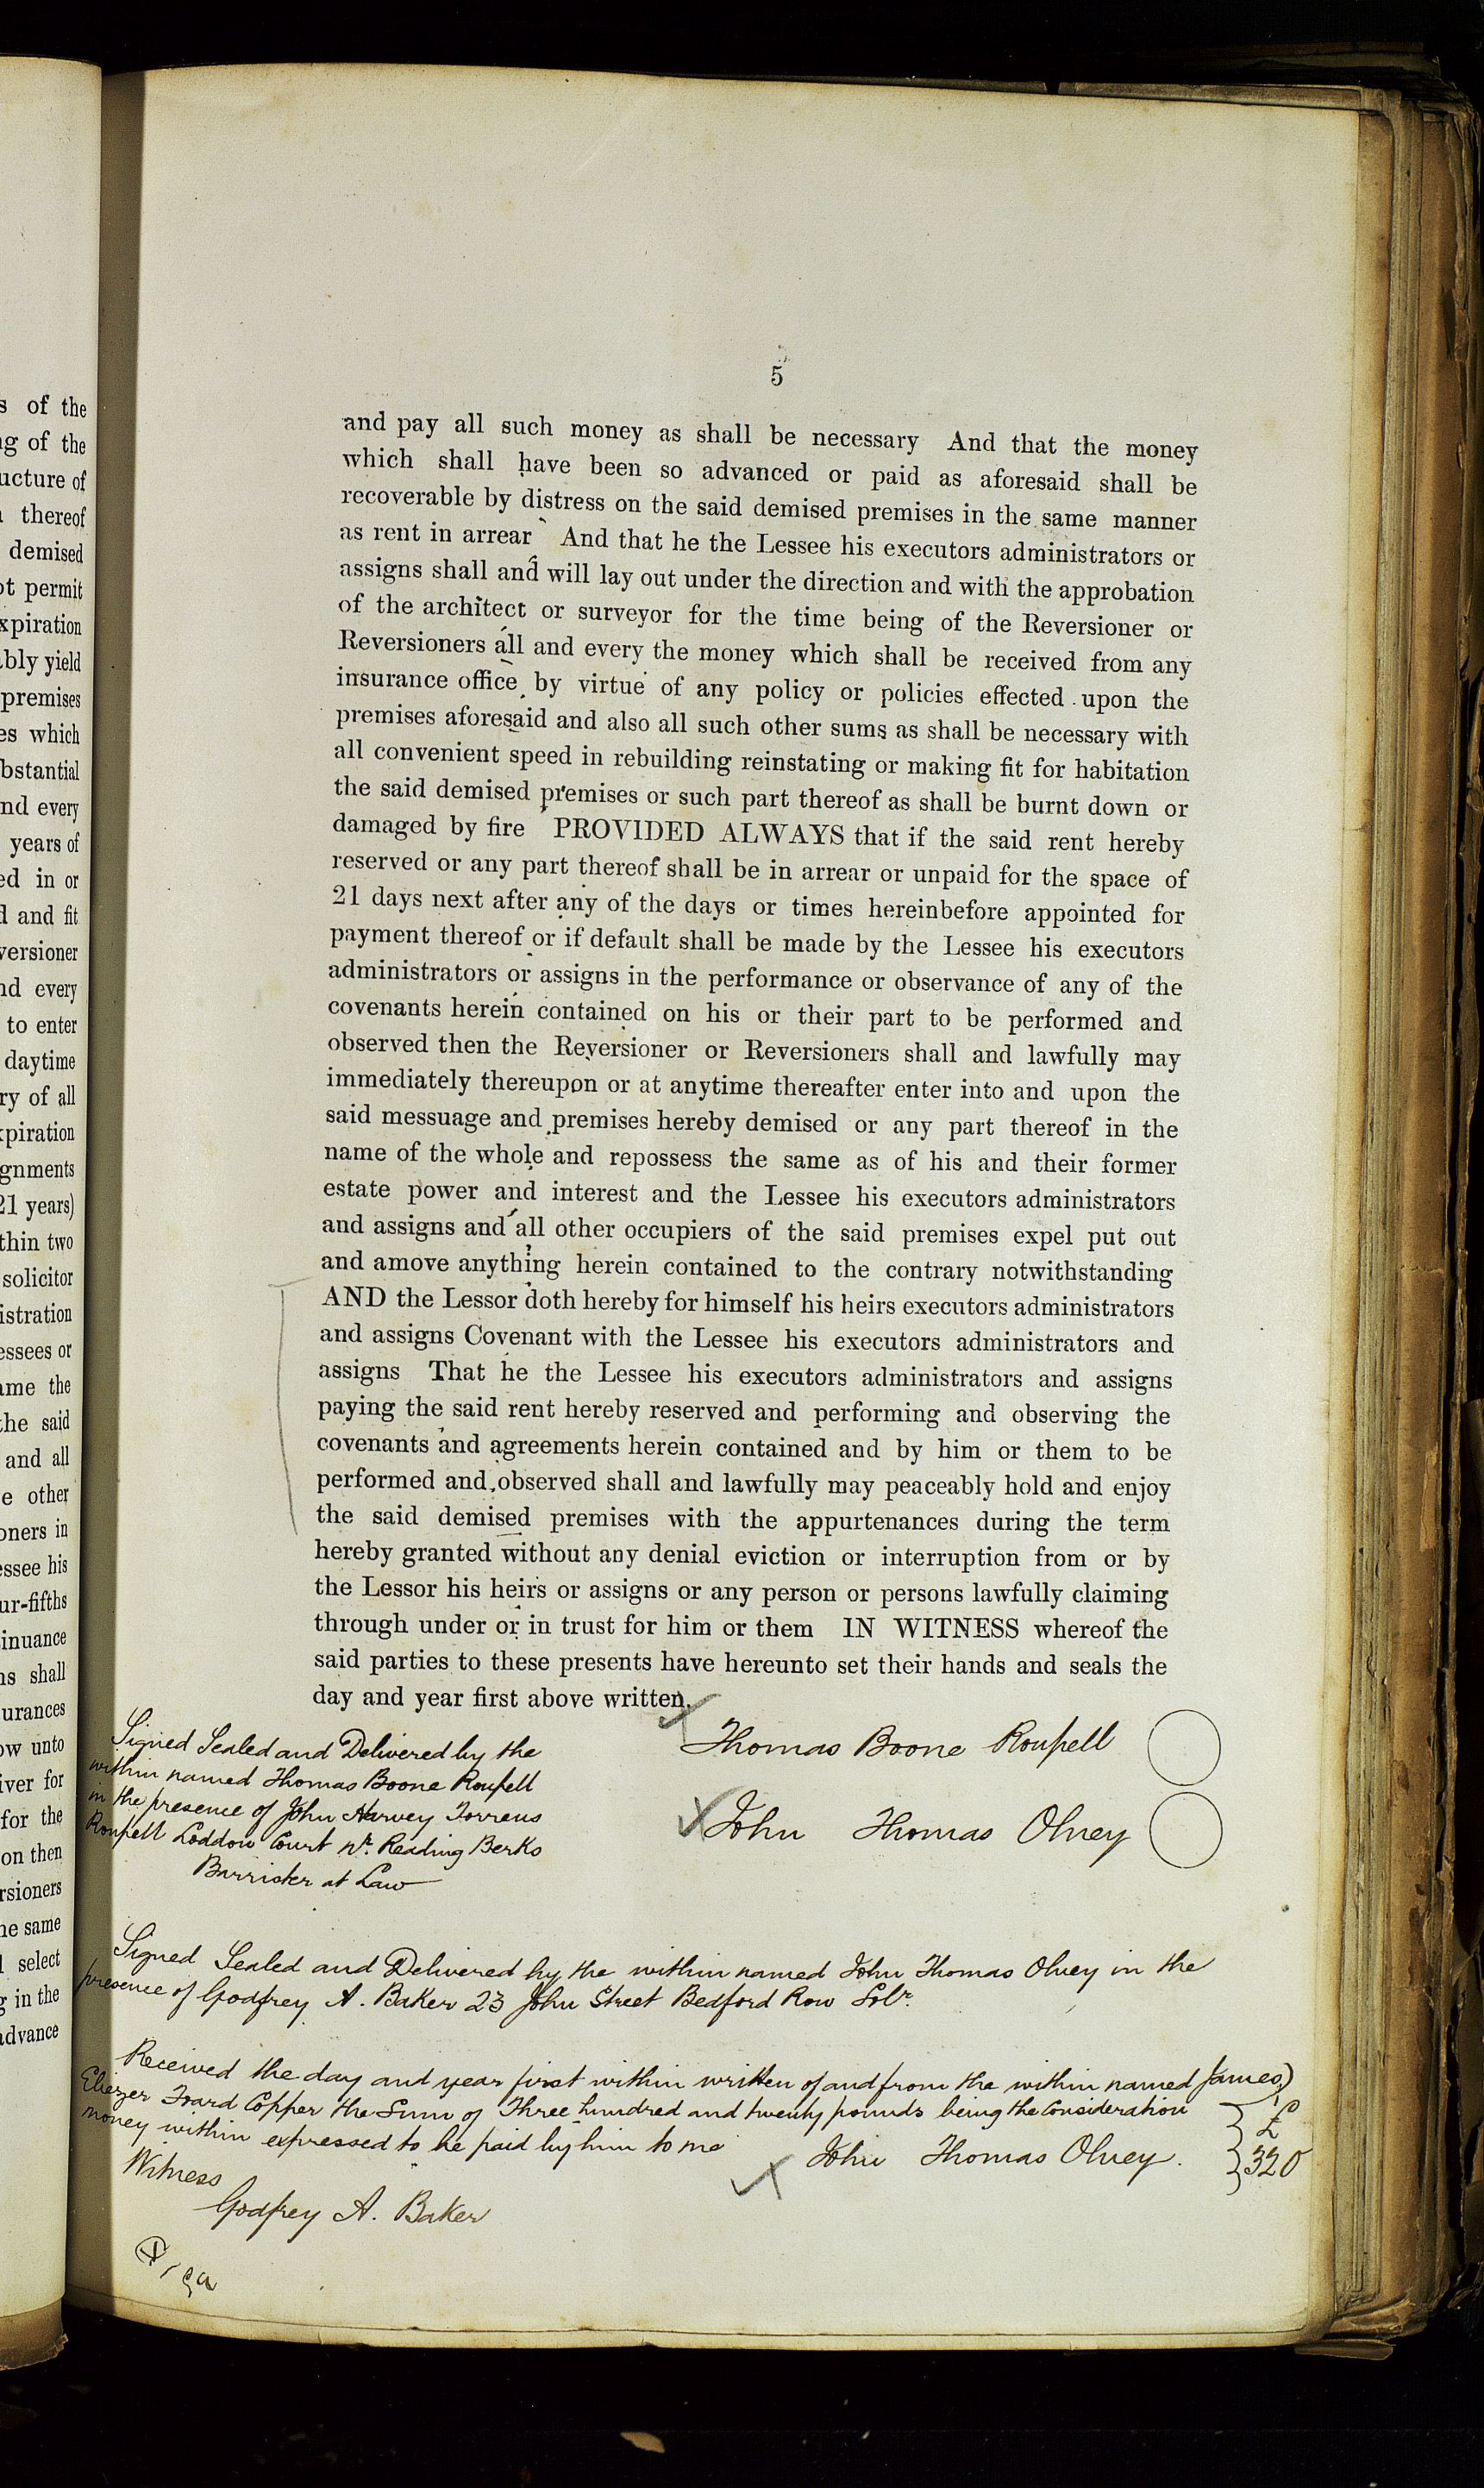 s of the
ng of the
ucture of
thereof
demised
ot permit
xpiration
ably yield
premises
es which
bstantial
nd every
years of
ed in or
d and fit
versioner
nd every
to enter
daytime
ry of all
xpiration
ignments
21 years)
thin two
solicitor
istration
essees or
ame the
the said
and all
e other
oners in
essee his
ur-fifths
inuance
ns shall
urances
ow unto
iver for
for the
on then
rsioners
he same
select
g in the
advance
5
and pay all such money as shall be necessary And that the money
which shall have been so advanced or paid as aforesaid shall be
recoverable by distress on the said demised premises in the same manner
as rent in arrear And that he the Lessee his executors administrators or
assigns shall and will lay out under the direction and with the approbation
of the architect or surveyor for the time being of the Reversioner or
Reversioners all and every the money which shall be received from any
insurance office by virtue of any policy or policies effected upon the
premises aforesaid and also all such other sums as shall be necessary with
all convenient speed in rebuilding reinstating or making fit for habitation
the said demised premises or such part thereof as shall be burnt down or
damaged by fire PROVIDED ALWAYS that if the said rent hereby
reserved or any part thereof shall be in arrear or unpaid for the space of
21 days next after any of the days or times hereinbefore appointed for
payment thereof or if default shall be made by the Lessee his executors
administrators or assigns in the performance or observance of any of the
covenants herein contained on his or their part to be performed and
observed then the Reversioner or Reversioners shall and lawfully may
immediately thereupon or at anytime thereafter enter into and upon the
said messuage and premises hereby demised or any part thereof in the
name of the whole and repossess the same as of his and their former
estate power and interest and the Lessee his executors administrators
and assigns and all other occupiers of the said premises expel put out
and amove anything herein contained to the contrary notwithstanding
AND the Lessor doth hereby for himself his heirs executors administrators
and assigns Covenant with the Lessee his executors administrators and
assigns That he the Lessee his executors administrators and assigns
paying the said rent hereby reserved and performing and observing the
covenants and agreements herein contained and by him or them to be
performed and observed shall and lawfully may peaceably hold and enjoy
the said demised premises with the appurtenances during the term
hereby granted without any denial eviction or interruption from or by
the Lessor his heirs or assigns or any person or persons lawfully claiming
through under or in trust for him or them IN WITNESS whereof the
said parties to these presents have hereunto set their hands and seals the
day and year first above written.
Signed Sealed and Delivered by the
within named Thomas Boone Roupell
in the presence of John Harvey Torrens
Roupell Loddon Court Nr. Reading Berks
Barrister at Law
Thomas Boone Roupell
John Thomas Olney
Signed Sealed and Delivered by the within named John Thomas Olney in the
presence of Godfrey A. Baker 23 John Street Bedford Row Solr.
Received the day and year first within written of and from the within named James
Eliezer Toard Copper the Sum of Three hundred and twenty pounds being the Consideration
money within expressed to be paid by him to me
£
320
John Thomas Olney.
Witness
Godfrey A. Baker